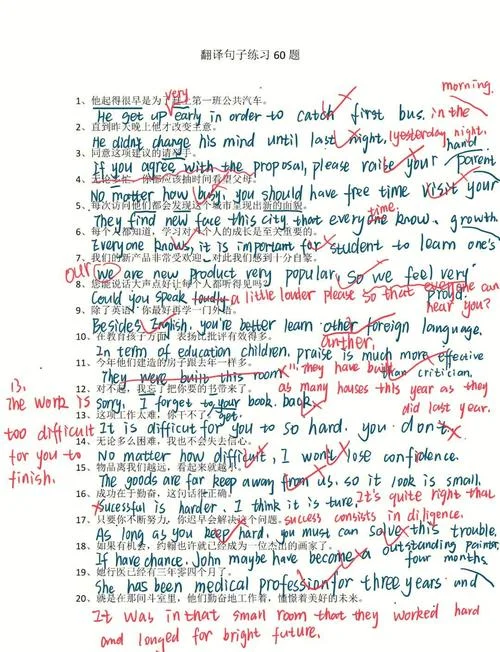 翻译句子练习 60 题
very
1、他起得很早是为了赶上第一班公共汽车。
morning.
He get up early in order to catch first bus. in the
2、直到昨天晚上他才改变主意。
He didn't change his mind until last night. (yesterday night.
3、同意这项建议的请举手。
hand
If you agree with the proposal, please raise your
4、无论多忙，你都应该抽时间看望父母。
parent
No matter how busy, you should have free time visit your
5、每次访问他们都会发现这个城市呈现出新的面貌。
time.
They find new face this city that everyone know.
6、每个人都知道，学习对个人的成长是至关重要的。
growth
Everyone knows, it is important for student to learn one's
7、我们的新产品非常受欢迎，对此我们感到十分自豪。
our we are new product very popular, so we feel very
8、您能说话大声点好让每个人都听得见吗？
proud.
Could you speak loudly a little louder please so that everyone can hear you?
9、除了英语，你最好再学一门外语。
Besides English, you're better learn other foreign language.
10、在教育孩子方面，表扬比批评有效得多。
another,
In term of education children, praise is much more effective
11、今年他们建造的房子跟去年一样多。
than criticism.
They were built this room "they have built
12、对不起，我忘了把你要的书带来了。
as many houses this year as they
did last year.
sorry, I forget to your book, back
get.
13、这项工作太难，你干不了。
13.
The work is
too difficult
for you to
finish.
It is difficut for you to so hard. you don't
14、无论多么困难，我也不会失去信心。
No matter how difficult, I won't lose confidence.
15、物品离我们越远，看起来就越小。
The goods are far keep away from us, so it look is small.
16、成功在于勤奋，这句话很正确。
It's quite right that
Sucessful is harder. I think it is ture.
17、只要你不断努力，你迟早会解决这个问题。
success consists in diligence.
As long as you keep hard, you must can solve this trouble.
18、如果有机会，约翰也许就已经成为一位杰出的画家了。
outstanding painter
If have chance, John maybe have become a
19、她行医已经有三年零四个月了。
four months.
She has been medical profession for three years and
20、就是在那间斗室里，他们勤奋地工作着，憧憬着美好的未来。
It was in that small room that they worked hard
and longed for bright future.